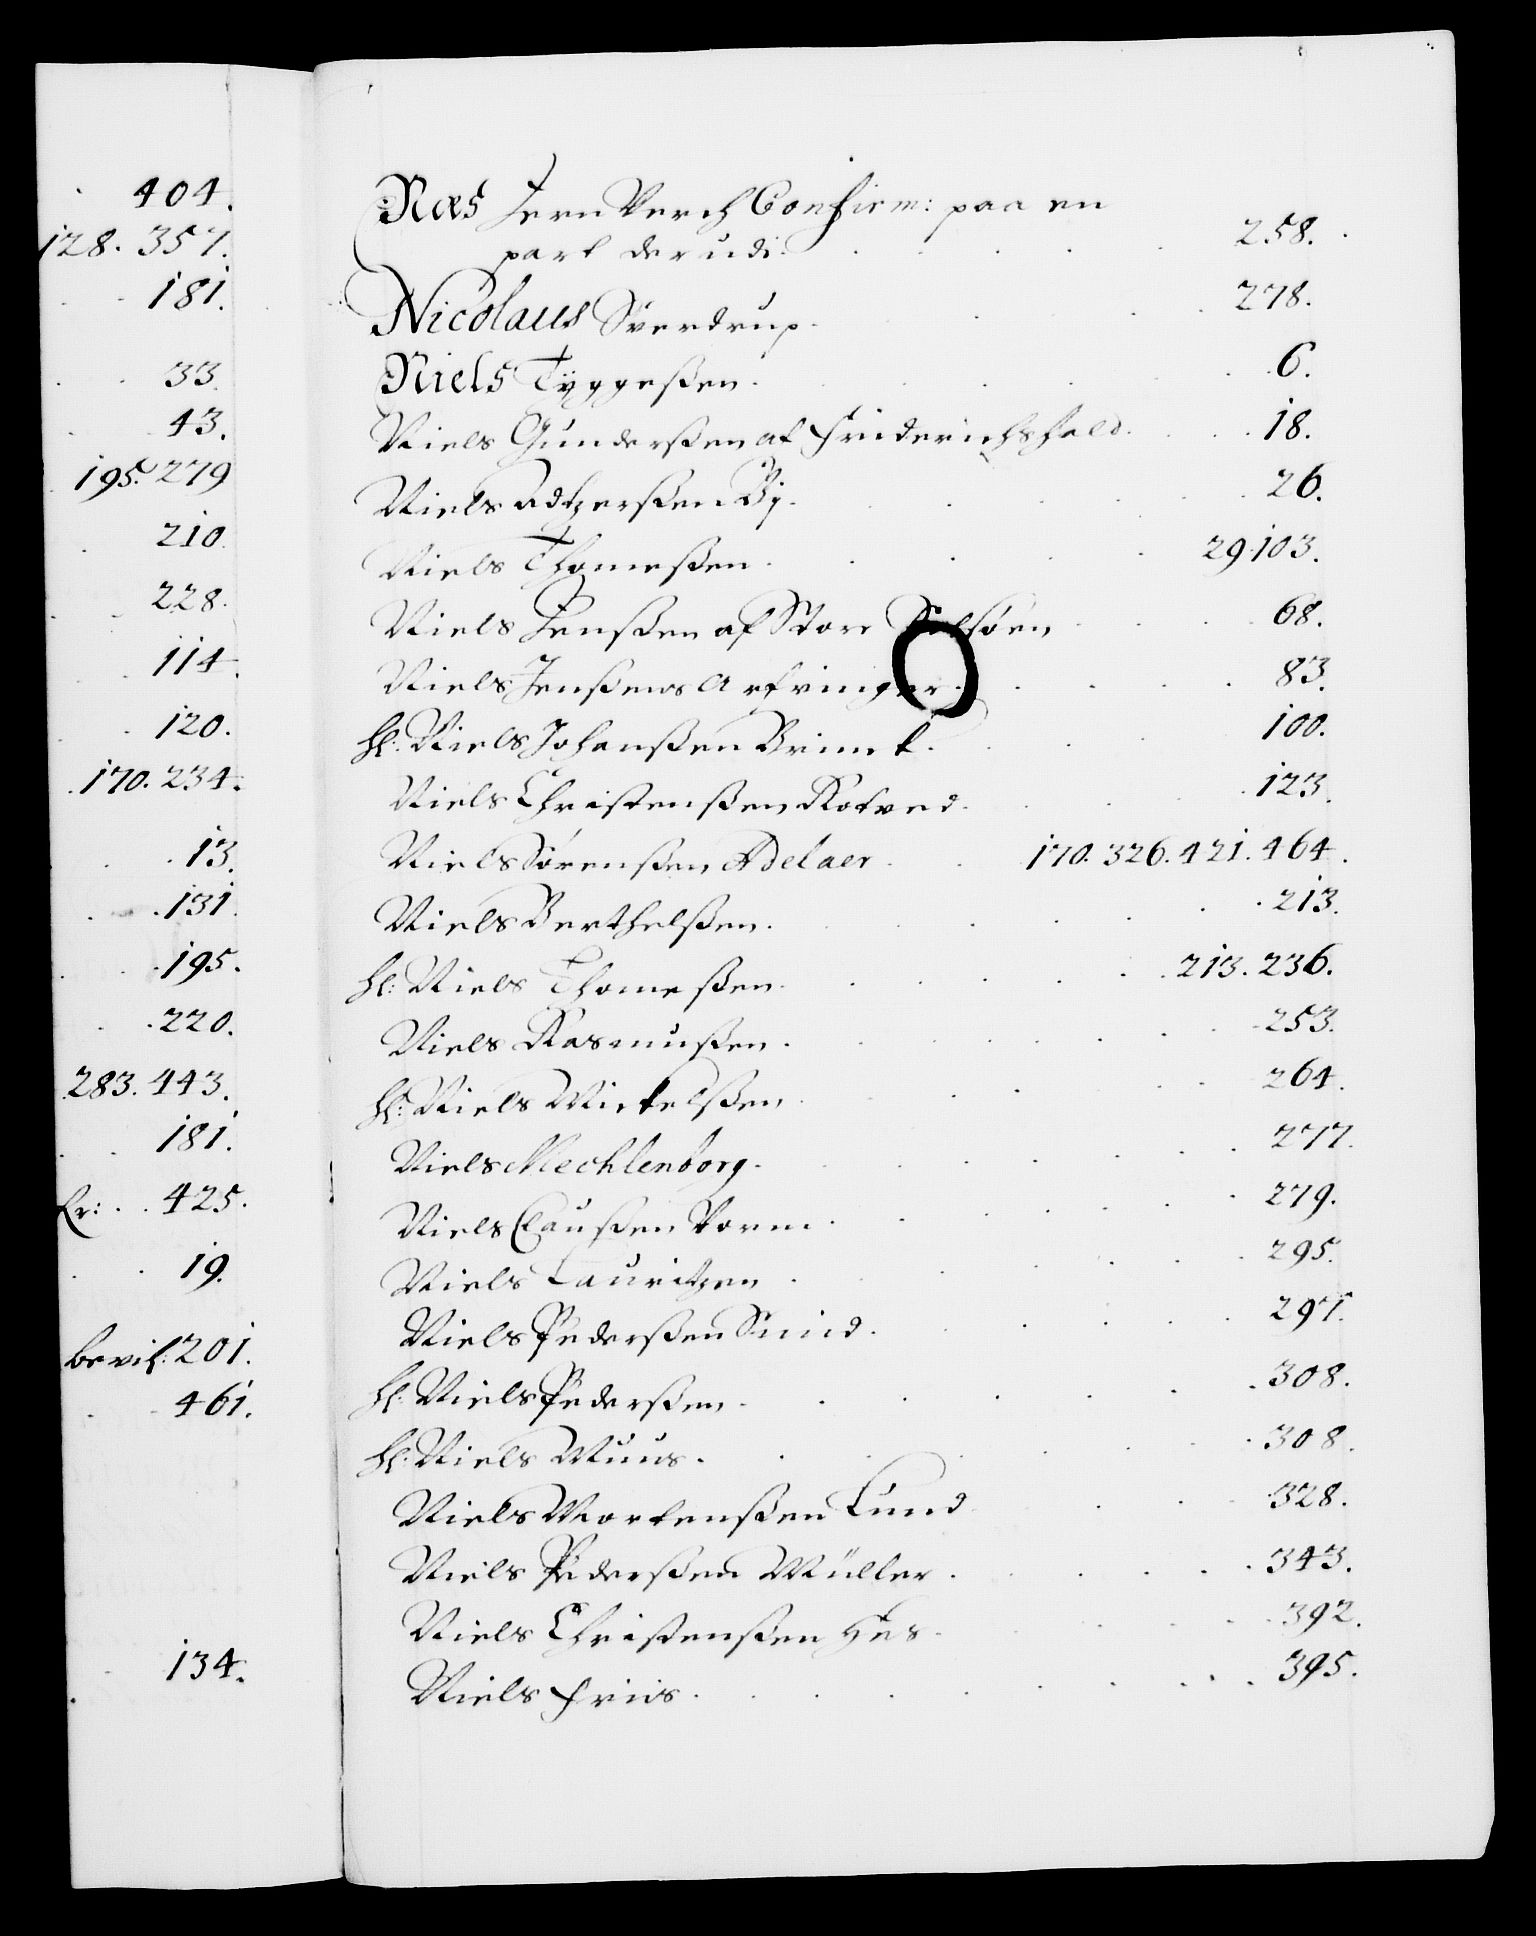 404.
128. 357.
181.
33.
43.
195. 279
210.
228.
114.
120.
170. 234.
13.
131.
195.
220.
283. 443.
181.
425.
19.
bevil: 201.
461.
134.
Næs Jern Verch Confirm: paa en
part derudi. 258.
Nicolaus Sverdrup. 278.
Niels Tyggeßen. 6.
Niels Gunderßen af Friderichshald. 18.
Niels Adtzerßen Bj. 26.
Niels Thomeßen. 29. 103.
Niels Jenßen af Store 68.
Niels Jenßens Arfvinger. 83.
Hl: Niels Johanßen Brinck. 100.
Niels Christenßen Kotved. 123.
Niels Sørenßen Adelaer 170. 326. 421. 464.
Niels Berthelßen. 213.
Hl: Niels Thomeßen. 213. 236.
Niels Rasmußen. 253.
Hl: Niels Mickelßen. 264.
Niels Mechlenborg. 277.
Niels Claußen Worm. 279.
Niels Lauritzen. 295.
Niels Pederßen Smid. 297.
Hl: Niels Pederßen. 308.
Hl: Niels Muus. 308.
Niels Mortenßen Lund 328.
Niels Pederßen Müller. 343.
Niels Christenßen Hes. 392.
Niels Friis. 395.